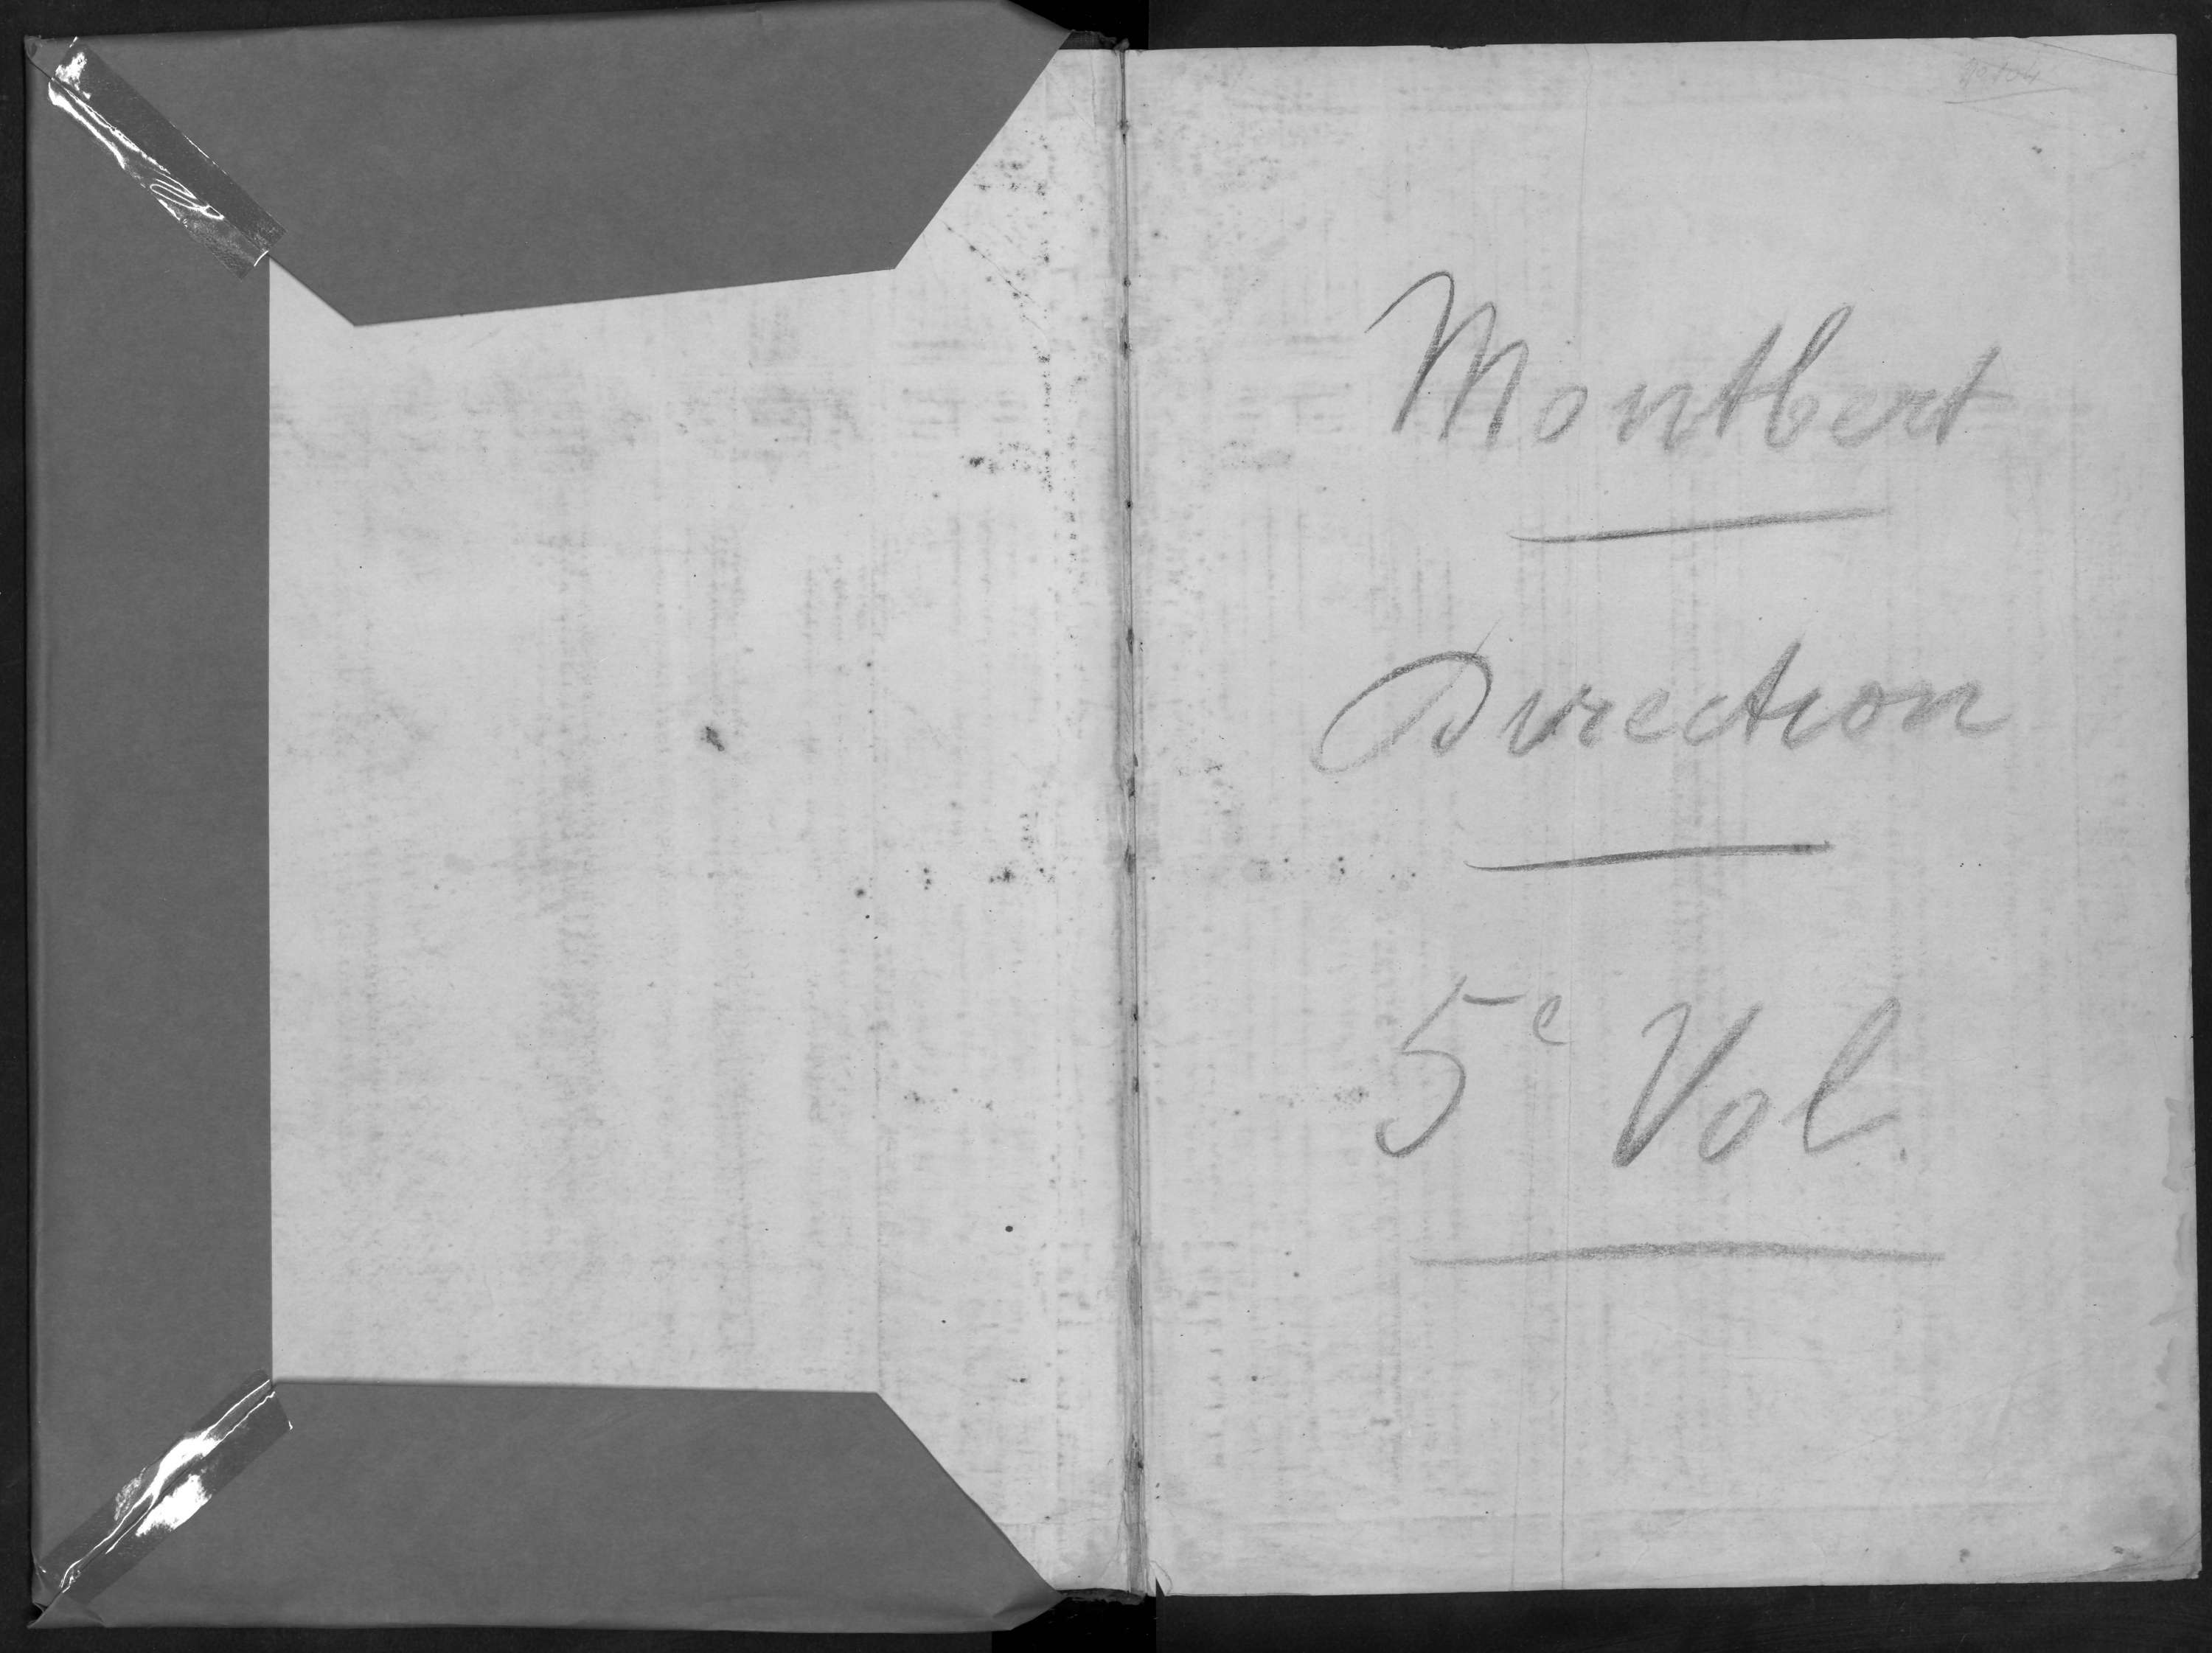 Montbert
Direction
5e Vol.